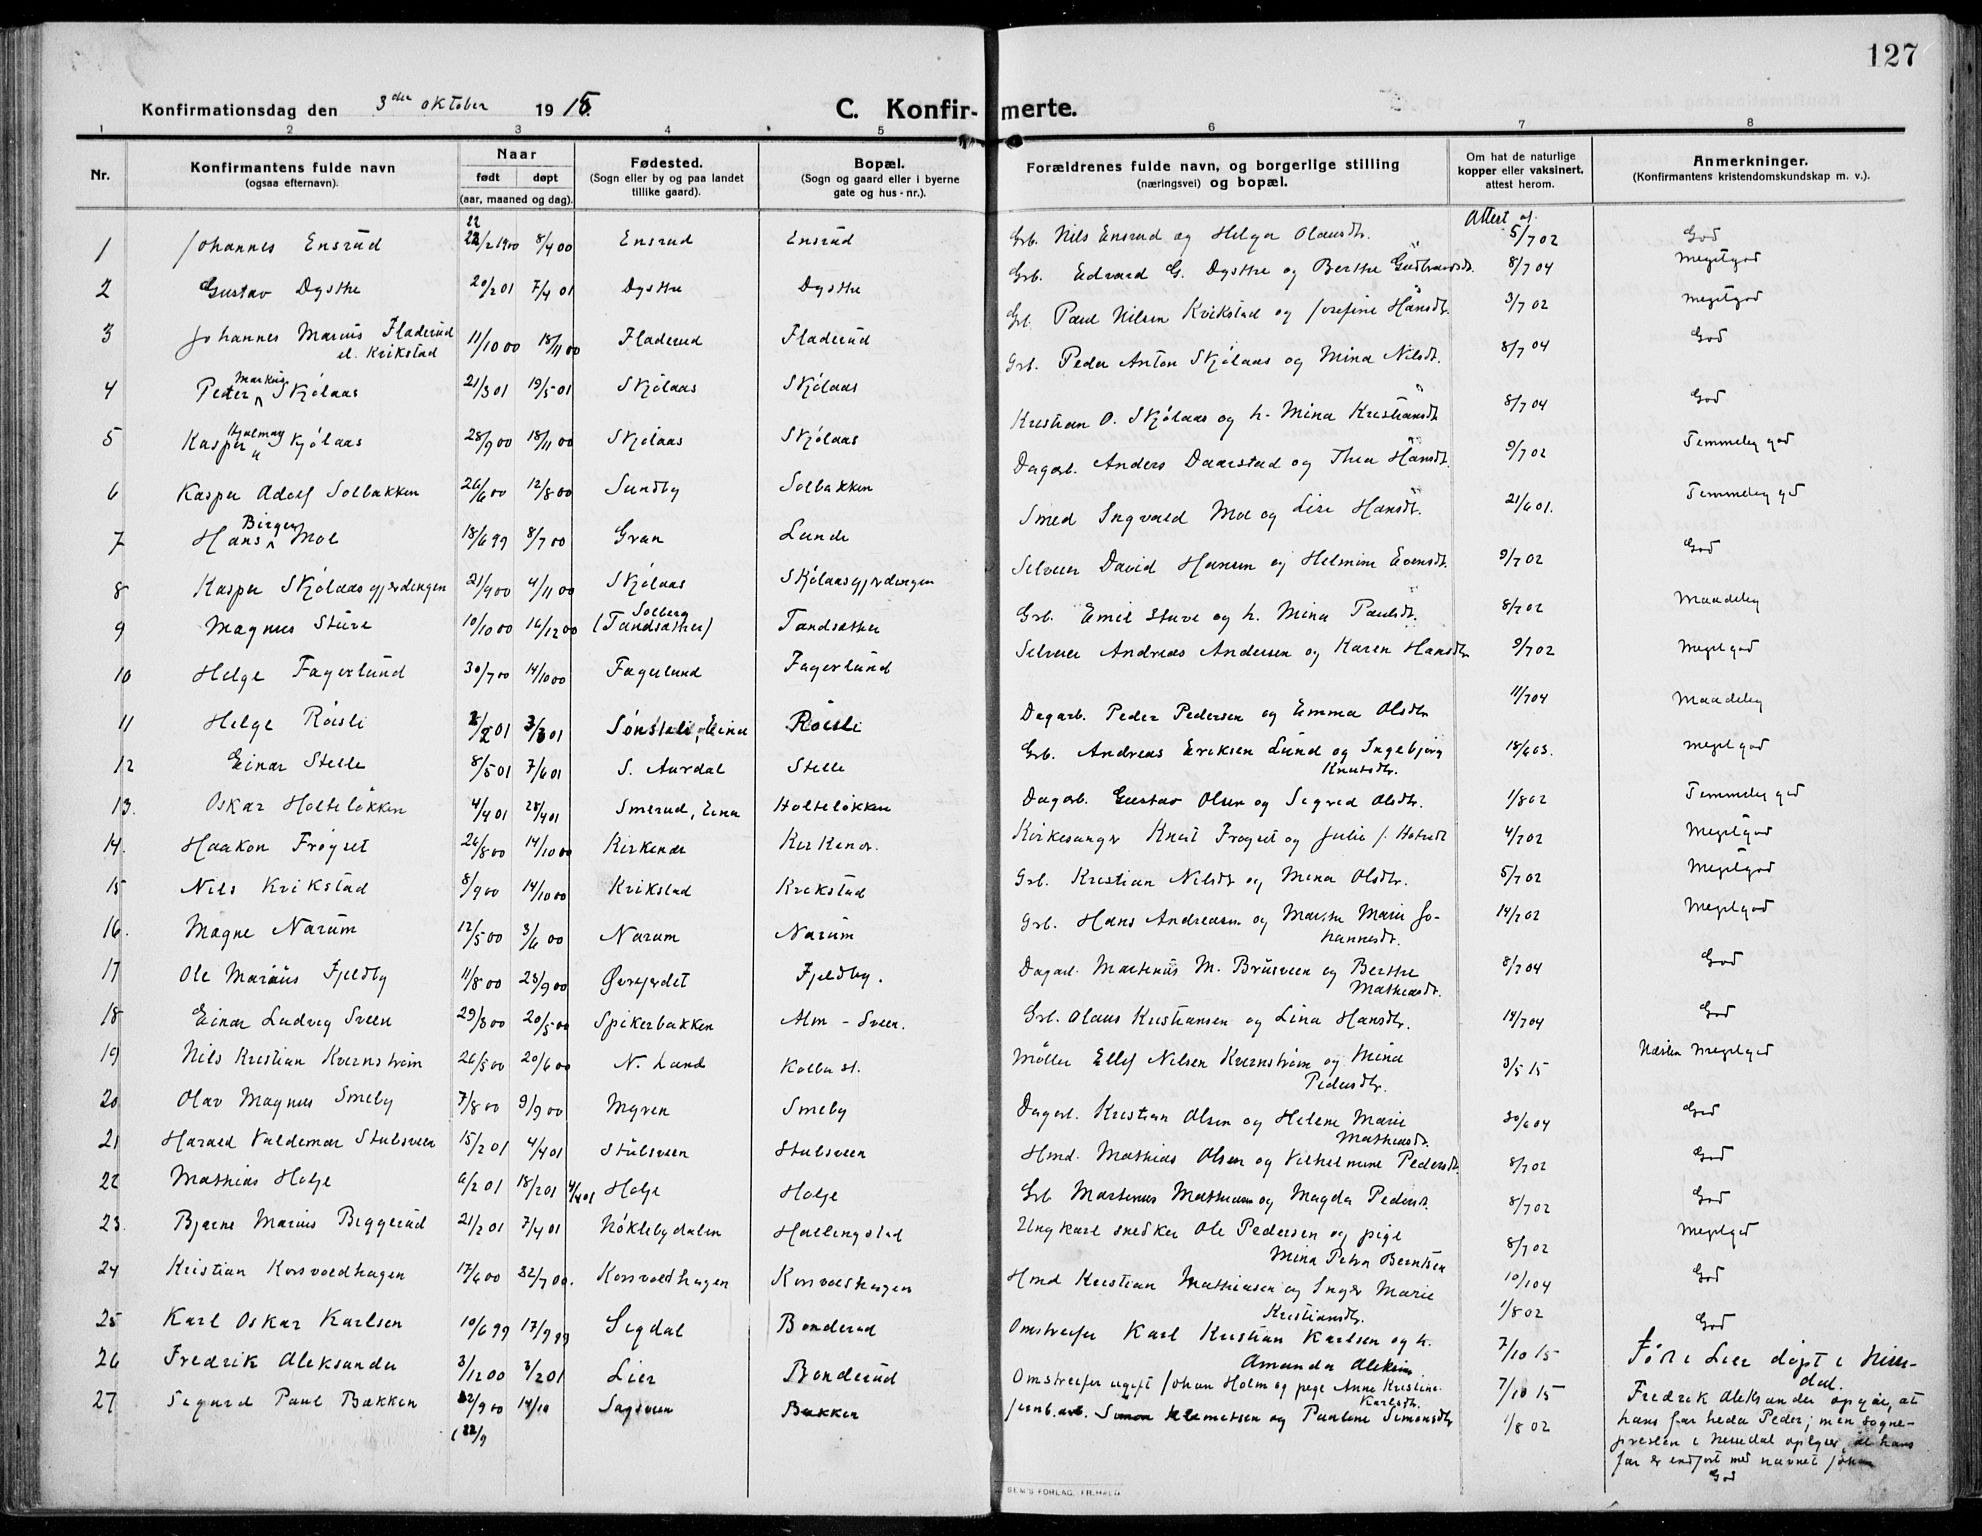 127
Konfirmationsdag den 3die oktober 1915.
C. Konfirmerte.
1 2 3 4 5 6 7 8
Nr.
Konfirmantens fulde navn
(ogsaa efternavn).
Naar
født døpt
(aar, maaned og dag).
Fødested.
(Sogn eller by og paa landet
tillike gaard).
Bopæl.
(Sogn og gaard eller i byerne
gate og hus-nr.).
Forældrenes fulde navn, og borgerlige stilling
(næringsvei) og bopæl.
Om hat de naturlige
kopper eller vaksinert,
attest herom.
Anmerkninger.
(Konfirmantens kristendomskundskap m. v.).
Attest af
1 Johannes Ensrud 22/2 1900 8/4 00 Ensrud Ensrud Grb. Nils Ensrud og Helga Olausdtr. 5/7 02 God
2 Gustav Dysthe 20/2 01 7/4 01 Dysthe Dysthe Grb. Edvard G. Dysthe og Berthe Gudbrandsdt. 8/7 04 Megetgod
3 Johannes Marius Fladerud
el. Krikstad 11/10 00 18/11 00 Fladerud Fladerud Grb. Paul Nilsen Kvikstad og Josefine Hansdtr. 3/7 02 Megetgod
4 Peder Markus Skjølaas 21/3 01 19/5 01 Skjølaas Skjølaas Grb. Peder Anton Skjølaas og Mina Nilsdt. 8/7 04 God
5 Kasper Hjalmar Skjølaas 28/9 00 18/11 00 Skjølaas Skjølaas Kristian O. Skjølaas og h. Mina Kristiansdt 8/7 04 God
6 Kasper Adolf Solbakken 26/6 00 12/8 00 Sundby Solbakken Dagarb. Anders Daarstad og Thea Hansdt. 9/7 02 Temmelig god
7 Hans Birger Moe 18/6 99 8/7 00 Gran Lunde Smed Ingvald Moe og Lise Hansdt. 21/6 01. Temmelig gd
8 Kasper Skjølaasgjerdingen 21/9 00 4/11 00 Skjølaas Skjølaasgjerdingen Selveier David Hansen og Helmine Evensdt. 9/7 02 God
9 Magnus Stuve 10/10 00 16/12 00 Solberg
(Tandsæther) Tandsæther Grb. Emil Stuve og h. Mina Paulsdt. 8/7 02 Maadelig
10 Helge Fagerlund 30/7 00 14/10 00 Fagerlund Fagerlund Selveier Andreas Andersen og Karen Hansdtr 9/7 02 Megetgod
11 Helge Røisli 2/2 01 3/3 01 Sønsteli, Eina Røisli Dagarb. Peder Pedersen og Emma Olsdtr 11/7 04 Maadelig
12 Einar Stelle 8/5 01 7/6 01 S. Aurdal Stelle Grb. Andreas Eriksen Lund og Ingebjørg
Knutsdtr. 18/6 03. Megetgod
13. Oskar Holteløkken 4/4 01 28/4 01 Smerud, Eina Holteløkken Dagarb. Gustav Olsen og Sigrid Olsdtr. 1/8 02 Temmelig god
14. Haakon Frøyset 26/8 00 14/10 00 Kirkenær Kirkenær. Kirkesanger Knut Frøyset og Julie f. Hotvedt 4/7 02 Megetgod
15 Nils Krikstad 8/9 00 14/10 00 Krikstad Krikstad Grb. Kristian Nilsdt og Mina Olsdtr. 5/7 02 Megetgod
16. Magne Narum 12/5 00 3/6 00 Narum Narum Grb. Hans Andreasen og Marthe Marie Jo-
hannesdt. 14/7 02 Megetgod
17 Ole Marius Fjeldby 11/8 00 23/9 00 Øvrejordet Fjeldby. Dagarb. Martinus M. Brusveen og Berthe
Mathiasdt. 8/7 04 God
18 Einar Ludvig Sveen 29/3 00 20/5 00 Spikerbakken Alm-Sveen. Grb. Olaus Kristiansen og Lina Hansdtr. 14/7 04 God
19 Nils Kristian Kvernstrøm 26/5 00 20/6 00 N. Land Kolbu st. Møller Ellef Nilsen Kvernstrøm og Mina
Pedersdtr. 3/5 15 Næsten Megetgod
20 Olav Magnus Smeby 7/8 00 9/9 00 Myren Smeby Dagarb. Kristian Olsen og Helene Marie
Mathiasdt. 30/6 04 God
21 Harald Valdemar Stulsveen 15/2 01 4/4 01 Stulsveen Stulsveen Hmd. Mathias Olsen og Vilhelmine Pedersdt. 8/7 02 God
22 Mathias Holje 6/2 01 18/2 01 4/4 01 Holje Holje Grb Martinus Mathiasen og Magda Pedersdt. 8/7 02 God
23. Bjarne Marius Biggerud 21/2 01 7/4 01 Nøklebydalen Hallingstad Ungkarl snedker Ole Pedersen og pige
Mina Petra Berntsen 8/7 02 Megetgod
24 Kristian Korsvoldhagen 17/6 00 22/7 00. Korsvoldhagen Korsvoldhagen Hmd Kristian Mathiasen og Inger Marie
Kristiansdtr. 10/1 04 God
25 Karl Oskar Karlsen 10/6 99 17/9 99 Sigdal Bonderud Omstreifer Karl Kristian Karlsen og h.
Amanda 1/8 02 God
26 Fredrik Aleksander 3/12 00 3/2 01 Lier Bonderud Omstreifer ugift Johan Holm og pige Anne Kristine
Karlsdtr. 7/10 15 Født i Lier døpt i Nitte-
dal.
27 Sigurd Paul Bakken 22/9 00 14/10 Sagsveen Bakken Jernb.arb. Simon Klemetsen og Pauline Simonsdtr 7/10 15 Fredrik Aleksander opgir, at
(22/9 1/8 02 hans far heder Peder; men sogne-
presten i Nittedal oplyser, at hans
far er indført med navnet Johan
God
SEM'S FORLAG, FR.HALD